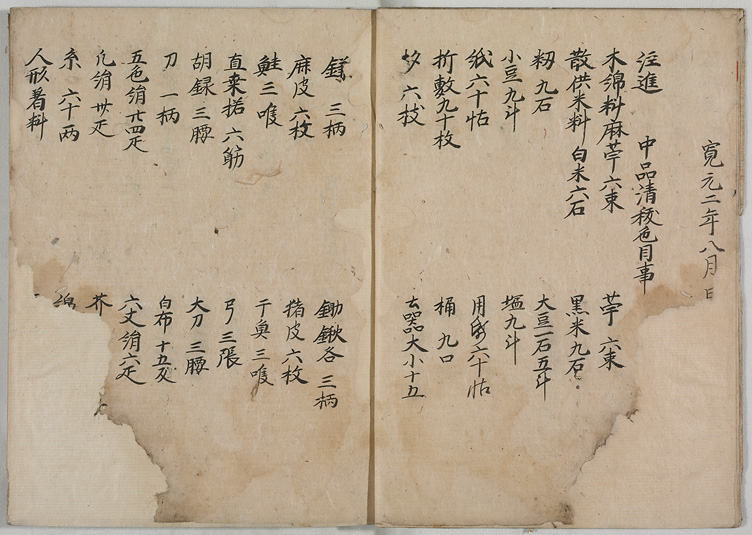 寛元二年八月 日
注進 中品清祓色目事
木綿料麻苧六束 苧 六束
散供米料 白米六石 黒米九石
籾 九石 大豆一石五斗
小豆九斗 塩九斗
紙六十帖 用紙六十帖
折敷九十枚 桶 九口
六枝 土器大小十五
三柄 鋤鍬各 三柄
麻皮 六枚 猪皮 六枚
鮭三喉 干魚三喉
直垂 六 弓 三張
胡録 三腰 大刀 三腰
刀 一柄 白布 十五
五色絹 廿四疋 六丈絹六疋
凡絹 卅疋 芥
糸 六十両 綿
人形着料